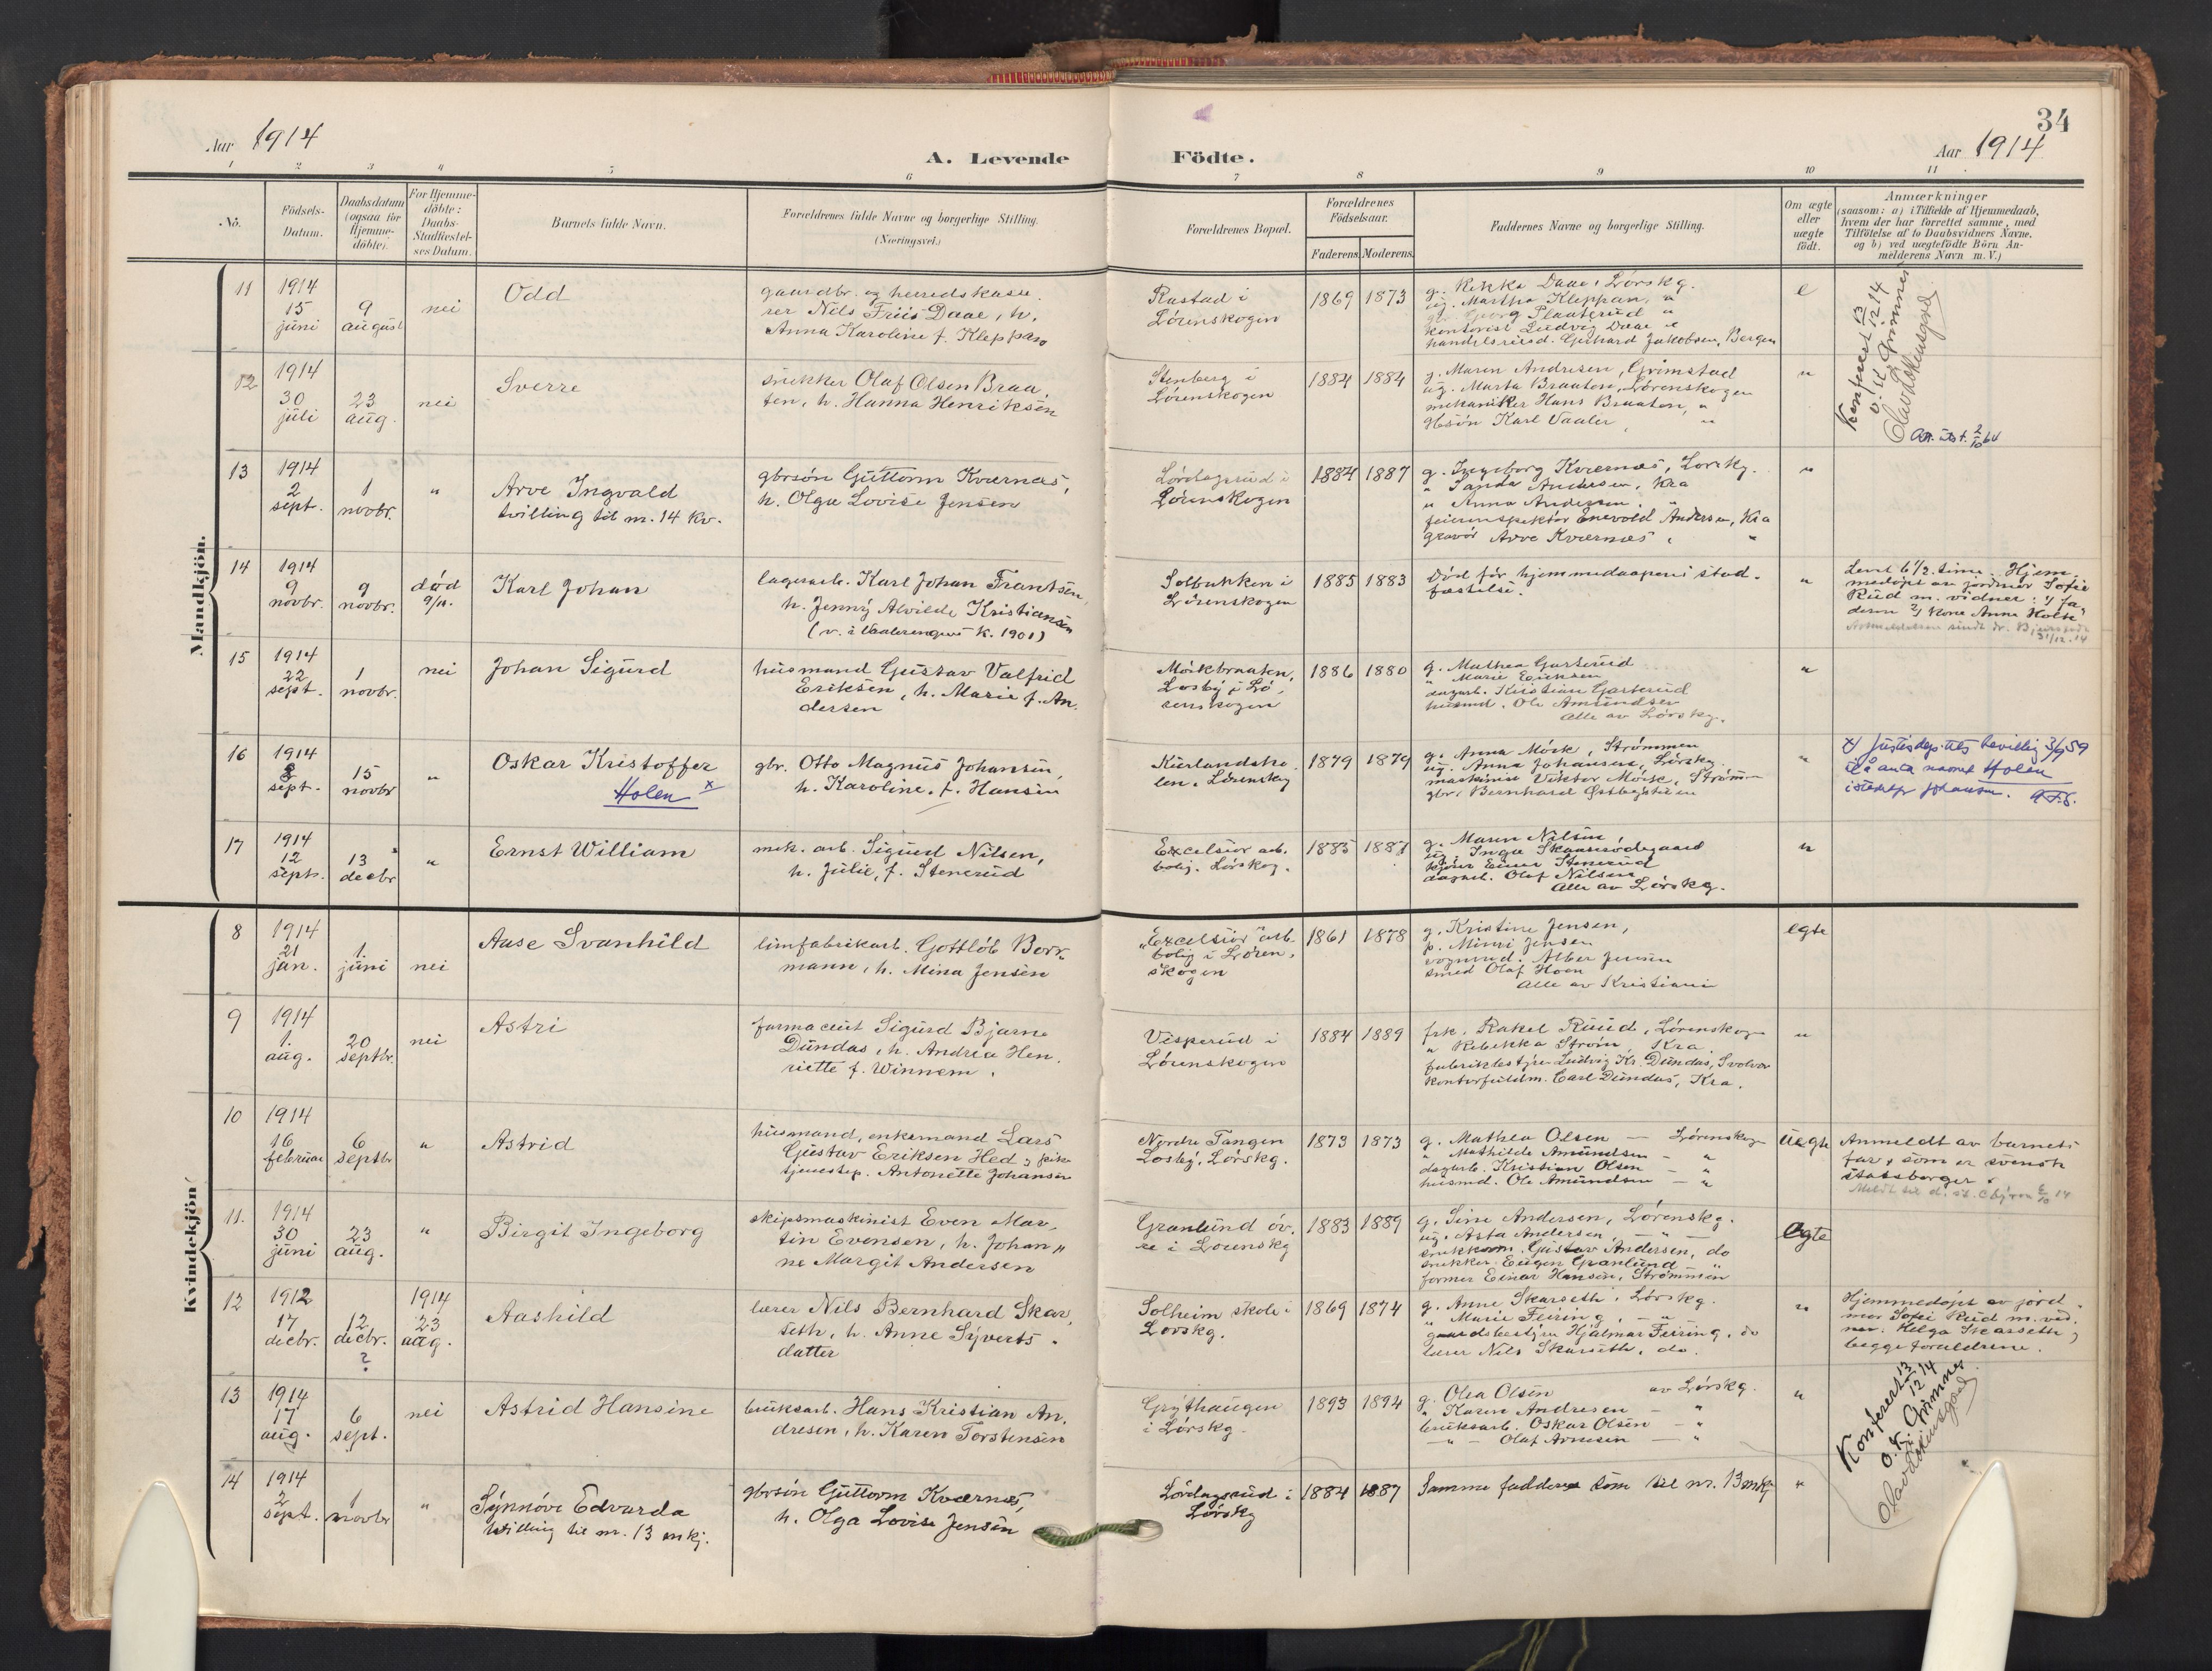 34
Aar 1914
A. Levende Födte.
Aar 1914
1 2 3 4 5 6 7 8 9 10 11
No.
Födsels-
Datum.
Daabsdatum
(ogsaa for
Hjemme-
döbte).
For Hjemme-
döbte:
Daabs-
Stadfæstel-
ses Datum.
Barnets fulde Navn.
Forældrenes fulde Navne og borgerlige Stilling.
(Næringsvei.)
Forældrenes Bopæl.
Forældrenes
Födselsaar.
Faderens. Moderens.
Faddernes Navne og borgerlige Stilling.
Om ægte
eller
uægte
födt.
Anmærkninger
(saasom: a) i Tilfælde af Hjemmedaab,
hvem der har forrettet samme, med
Tilföielse af to Daabsvidners Navne,
og b) ved uægtefödte Börn An-
melderens Navn m. V.)
Mandkjön.
11
1914
15
juni
9
august
nei
Odd
gaardbr. og herredskasse-
rer Nils Friis Daae, h.
Anna Karoline f. Kleppan
Rustad i
Lörenskogen
1869 1873
g. Rikka Daae, Lörskg.
ug. Martha Kleppan, "
gbr. Georg Plaaterud "
kontorist Ludvig Daae "
handelsreisd. Gerhard Jakobsen, Bergen
e
Konferert 13/12 14
O. K. Grimnes
Olav Lokensgard
12
1914
30
juli
23
aug.
nei
Sverre
snekker Olaf Olsen Braa-
ten, h. Hanna Henriksen
Stenberg i
Lörenskogen
1884 1884
g. Maren Andresen, Grimstad
ug. Marta Braaten, Lörenskogen
mekaniker Hans Braaten, "
Karl Vaaler "
"
Att. utst. 2/10 64
13
1914
2
sept.
1
novbr.
"
Arve Ingvald
tvilling til nr. 14 kv.
gbrsön Guttorm Kværnæs,
h. Olga Lovise Jensen
Lördagsrud i
Lörenskogen
1884 1887
g. Ingeborg Kværnæs, Lörskg.
" Sanda Andersen, Kra
" Anna Andersen, "
feierinspektör Enevold Andersen, Kra
gravör Arve Kværnæs, "
"
14
1914
9
novbr.
9
novbr.
död
9/11.
Karl Johan
lagerarb. Karl Johan Frantsen,
h. Jenny Alvilde Kristiansen
(v. i Vaalerengens k. 1901)
Solbakken i
Lörenskogen
1885 1883
Död för hjemmedaapens stad-
fæstelse.
"
Levet 6 1/2 time. Hjem-
medöpt av jordmor Sofie
Rud m. vidner: 1/ fa-
deren 2/ kone Anna Holth
15
1914
22
sept.
1
novbr.
nei
Johan Sigurd
husmand Gustav Valfrid
Eriksen, h. Marie f. An-
dersen
Mörkbraaten,
Losby i Lö-
renskogen
1886 1880
g. Mathea Garterud
" Marie Eriksen
dagarb. Kristian Garterud
husmd. Ole Amundsen
Alle av Lörskg.
"
16
1914
8
sept.
15
novbr
"
Oskar Kristoffer
Holen x
gbr. Otto Magnus Johansen,
h. Karoline, f. Hansen
Kurlandsho-
len, Lörenskg
1879 1879
g. Anna Mörk, Strömmen
ug. Anna Johansen, Lörskg.
maskinist Viktor Mörk, Strömm
gbr. Bernhard Östbystuen
"
x) Justisdep.ts bevillg 3/9 59
til å anta navnet Holen
istedetfor Johansen.
17
1914
12
sept.
13
decbr
"
Ernst William
mek. arb. Sigurd Nilsen,
h. Julie, f. Stenerud
Excelsior arb.
bolig, Lörskog.
1885 1887
g. Maren Nilsen,
ug. Inga Skaarsödegaard
Einar Stenerud
dagarb. Olaf Nilsen
Alle av Lörskg.
"
Kvindekjön
8
1914
21
jan.
1.
juni
nei
Aase Svanhild
limfabrikarb. Gottlöb Borr-
mann, h. Mina Jensen
"Excelsior" arb.
bolig i Lören-
skogen
1861 1878
g. Kristine Jensen,
p. Mimi Jensen
vognmd. Albert Jensen
smed Olaf Hoen
Alle av Kristiania
egte
9
1914
1.
aug.
20
septbr.
nei
Astri
farmaceut Sigurd Bjarne
Dundas, h. Andrea Hen-
riette f. Winnem.
Visperud i
Lörenskogen
1884 1889
frk. Rakel Ruud, Lörenskogen
" Rebekka Ström, Kra
fabrikbestyrer Ludvig Kr. Dundas, Svolvær
kontorfuldm. Carl Dundas, Kra.
"
10
1914
16
februar
6
septbr
"
Astrid
husmand, enkemand Lars
Gustav Eriksen Hed og pike
tjenestep. Antonette Johansen
Nordre Tangen
Losby, Lörskg.
1873 1873
g. Mathea Olsen — Lörenskog
" Mathilde Amundsen — "
dagarb. Kristian Olsen — "
husmd. Ole Amundsen — "
uegte
Anmeldt av barnets
far, som er svensk
statsborger.
11.
1914
30
juni
23
aug.
"
Birgit Ingeborg
skipsmaskinist Even Mar-
tin Evensen, h. Johan-
ne Margit Andersen
Granlund öv-
re i Lörenskg
1883 1889
g. Sine Andersen, Lörenskg.
ug. Asta Andersen, — " —
snekkerm. Gustav Andersen, do
snekker Eugen Granlund "
former Einar Hansen, Strömmen
egte
12
1912
17
decbr.
12
decbr.
?
1914
23
aug.
Aashild
lærer Nils Bernhard Skar-
seth, h. Anne Syverts-
datter
Solheim skole i
Lörskg.
1869 1874
g. Anne Skarseth, Lörskg.
" Marie Feiring, — " —
gaardsbestyrer Hjalmar Feiring, do
lærer Nils Skarseth, do.
"
Hjemmedöpt av jord-
mor Sofie Rud m. vid-
ner: Helga Skarseth,
begge forældrene.
13
1914
17
aug.
6
sept.
nei
Astrid Hansine
bruksarb. Hans Kristian An-
dresen, h. Karen Torstensen
Gröthaugen
i Lörskg.
1893 1894
g. Olea Olsen av Lörskg.
" Karen Andresen — "
bruksarb. Oskar Olsen — "
— " — Olaf Arnesen — "
"
Konferert 13/12 14
O. K. Grimnes
Olav Lokensgard
14
1914
2
sept.
1
novbr
"
Synnöve Edvarda
tvilling til nr. 13 mkj.
gbrsön Guttorm Kværnæs,
h. Olga Lovise Jensen
Lördagsrud i
Lörskg
1884 1887
Samme faddere som til nr. 13 mkj
"